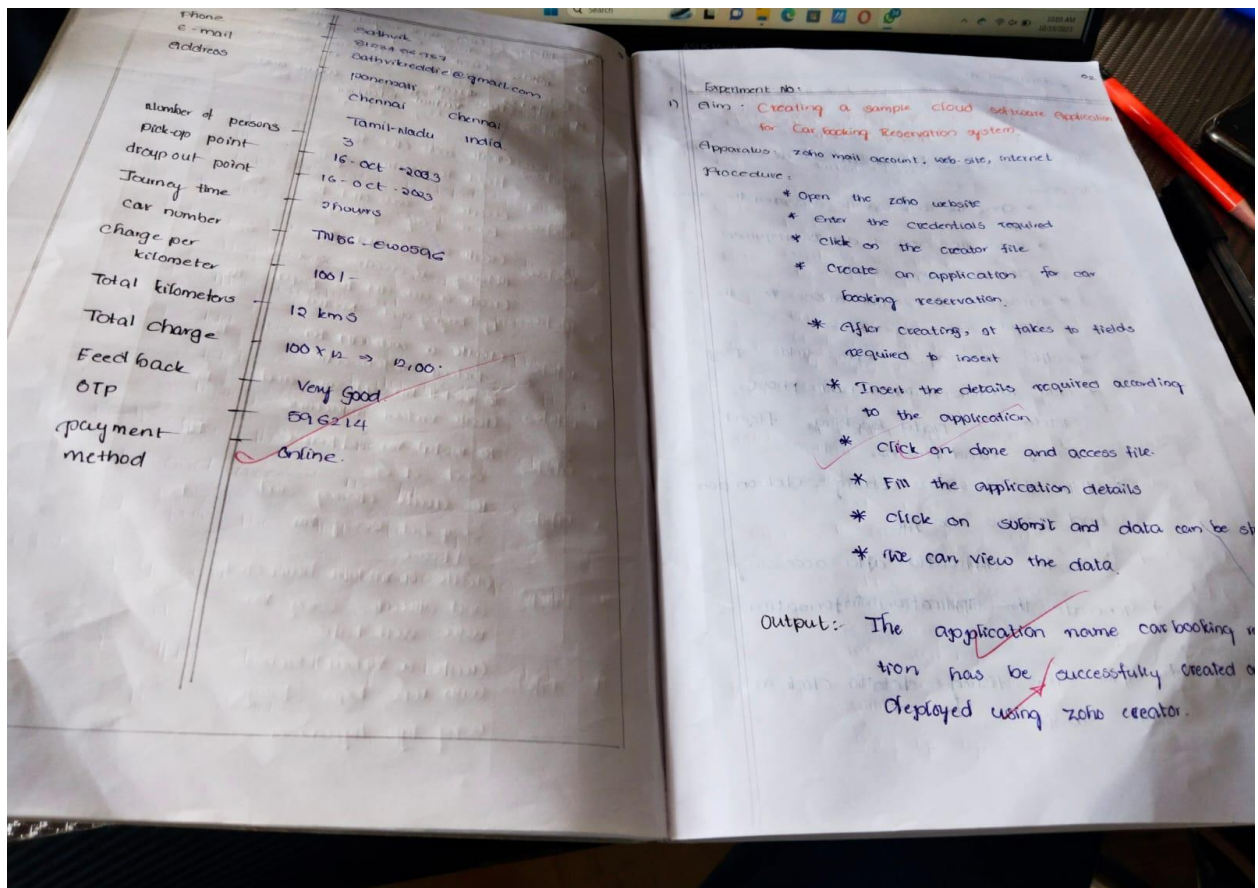 Search
10:05 AM
Phone
e-mail
address
Sathvik
sathvikreddie@gmail.com
Chennai Chennai
Tamil-Nadu India
Number of persons 3
pick-up point 16-Oct-2023
droup out point 16-Oct-2023
Journey time 2hours
Car number
charge per
kilometer 100/-
Total kilometers 12 kms
Total charge 100 X 12 => 12,00.
Feed back Very Good
OTP 596214
payment
method Online.
02
Experiment No:
1) Aim: Creating a sample cloud software Application
for Car booking Reservation system.
Apparatus: zoho mail account, web-site, internet
Procedure:
* Open the zoho website
* Enter the credentials required
* click on the creator file
* Create an application for car
booking reservation.
* After creating, it takes to fields
required to insert
* Insert the details required according
to the application
* click on done and access file.
* Fill the application details
* click on submit and data can be
* we can view the data.
Output:- The application name car booking
tion has be successfully created
deployed using zoho creator.